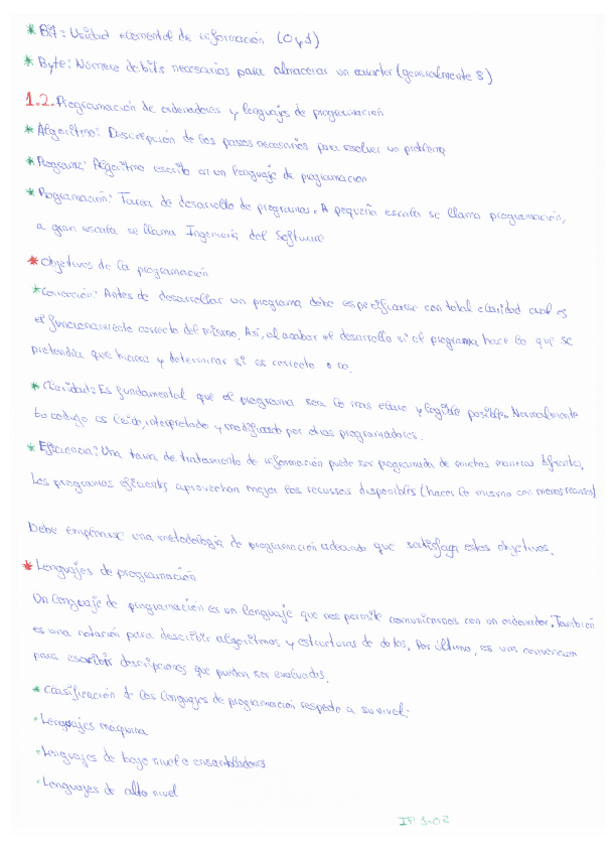 * Bit: Unidad elemental de información (0 y 1)
* Byte: Número de bits necesarios para almacenar un carácter (generalmente 8)
1.2. Programación de ordenadores y lenguajes de programación
* Algoritmo: Descripción de los pasos necesarios para resolver un problema
* Programa: Algoritmo escrito en un lenguaje de programación
* Programación: Tarea de desarrollo de programas. A pequeña escala se llama programación,
a gran escala se llama Ingeniería del Software
* Objetivos de la programación
* Corrección: Antes de desarrollar un programa debe especificarse con total claridad cual es
el funcionamiento correcto del mismo. Así, al acabar el desarrollo si el programa hace lo que se
pretendía que hiciera y determinar si es correcto o no.
* Claridad: Es fundamental que el programa sea lo mas claro y legible posible. Normalmente
tu código es leído, interpretado y modificado por otros programadores.
* Eficiencia: Una tarea de tratamiento de información puede ser programada de muchas maneras diferentes.
Los programas eficientes aprovechan mejor los recursos disponibles (hacer lo mismo con menos recursos)
Debe emplearse una metodología de programación adecuada que satisfaga estos objetivos.
* Lenguajes de programación
Un lenguaje de programación es un lenguaje que nos permite comunicarnos con un ordenador. También
es una notación para describir algoritmos y estructuras de datos. Por último, es una convención
para escribir descripciones que puedan ser evaluadas.
* Clasificación de los lenguajes de programación respecto a su nivel:
· Lenguajes máquina
· Lenguajes de bajo nivel o ensambladores
· Lenguajes de alto nivel
IP 1.02